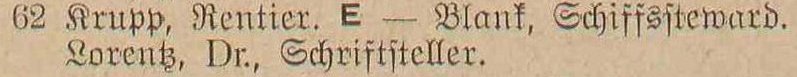 62 Krupp, Rentier. E — Blank, Schiffssteward.
Lorentz, Dr., Schriftsteller.